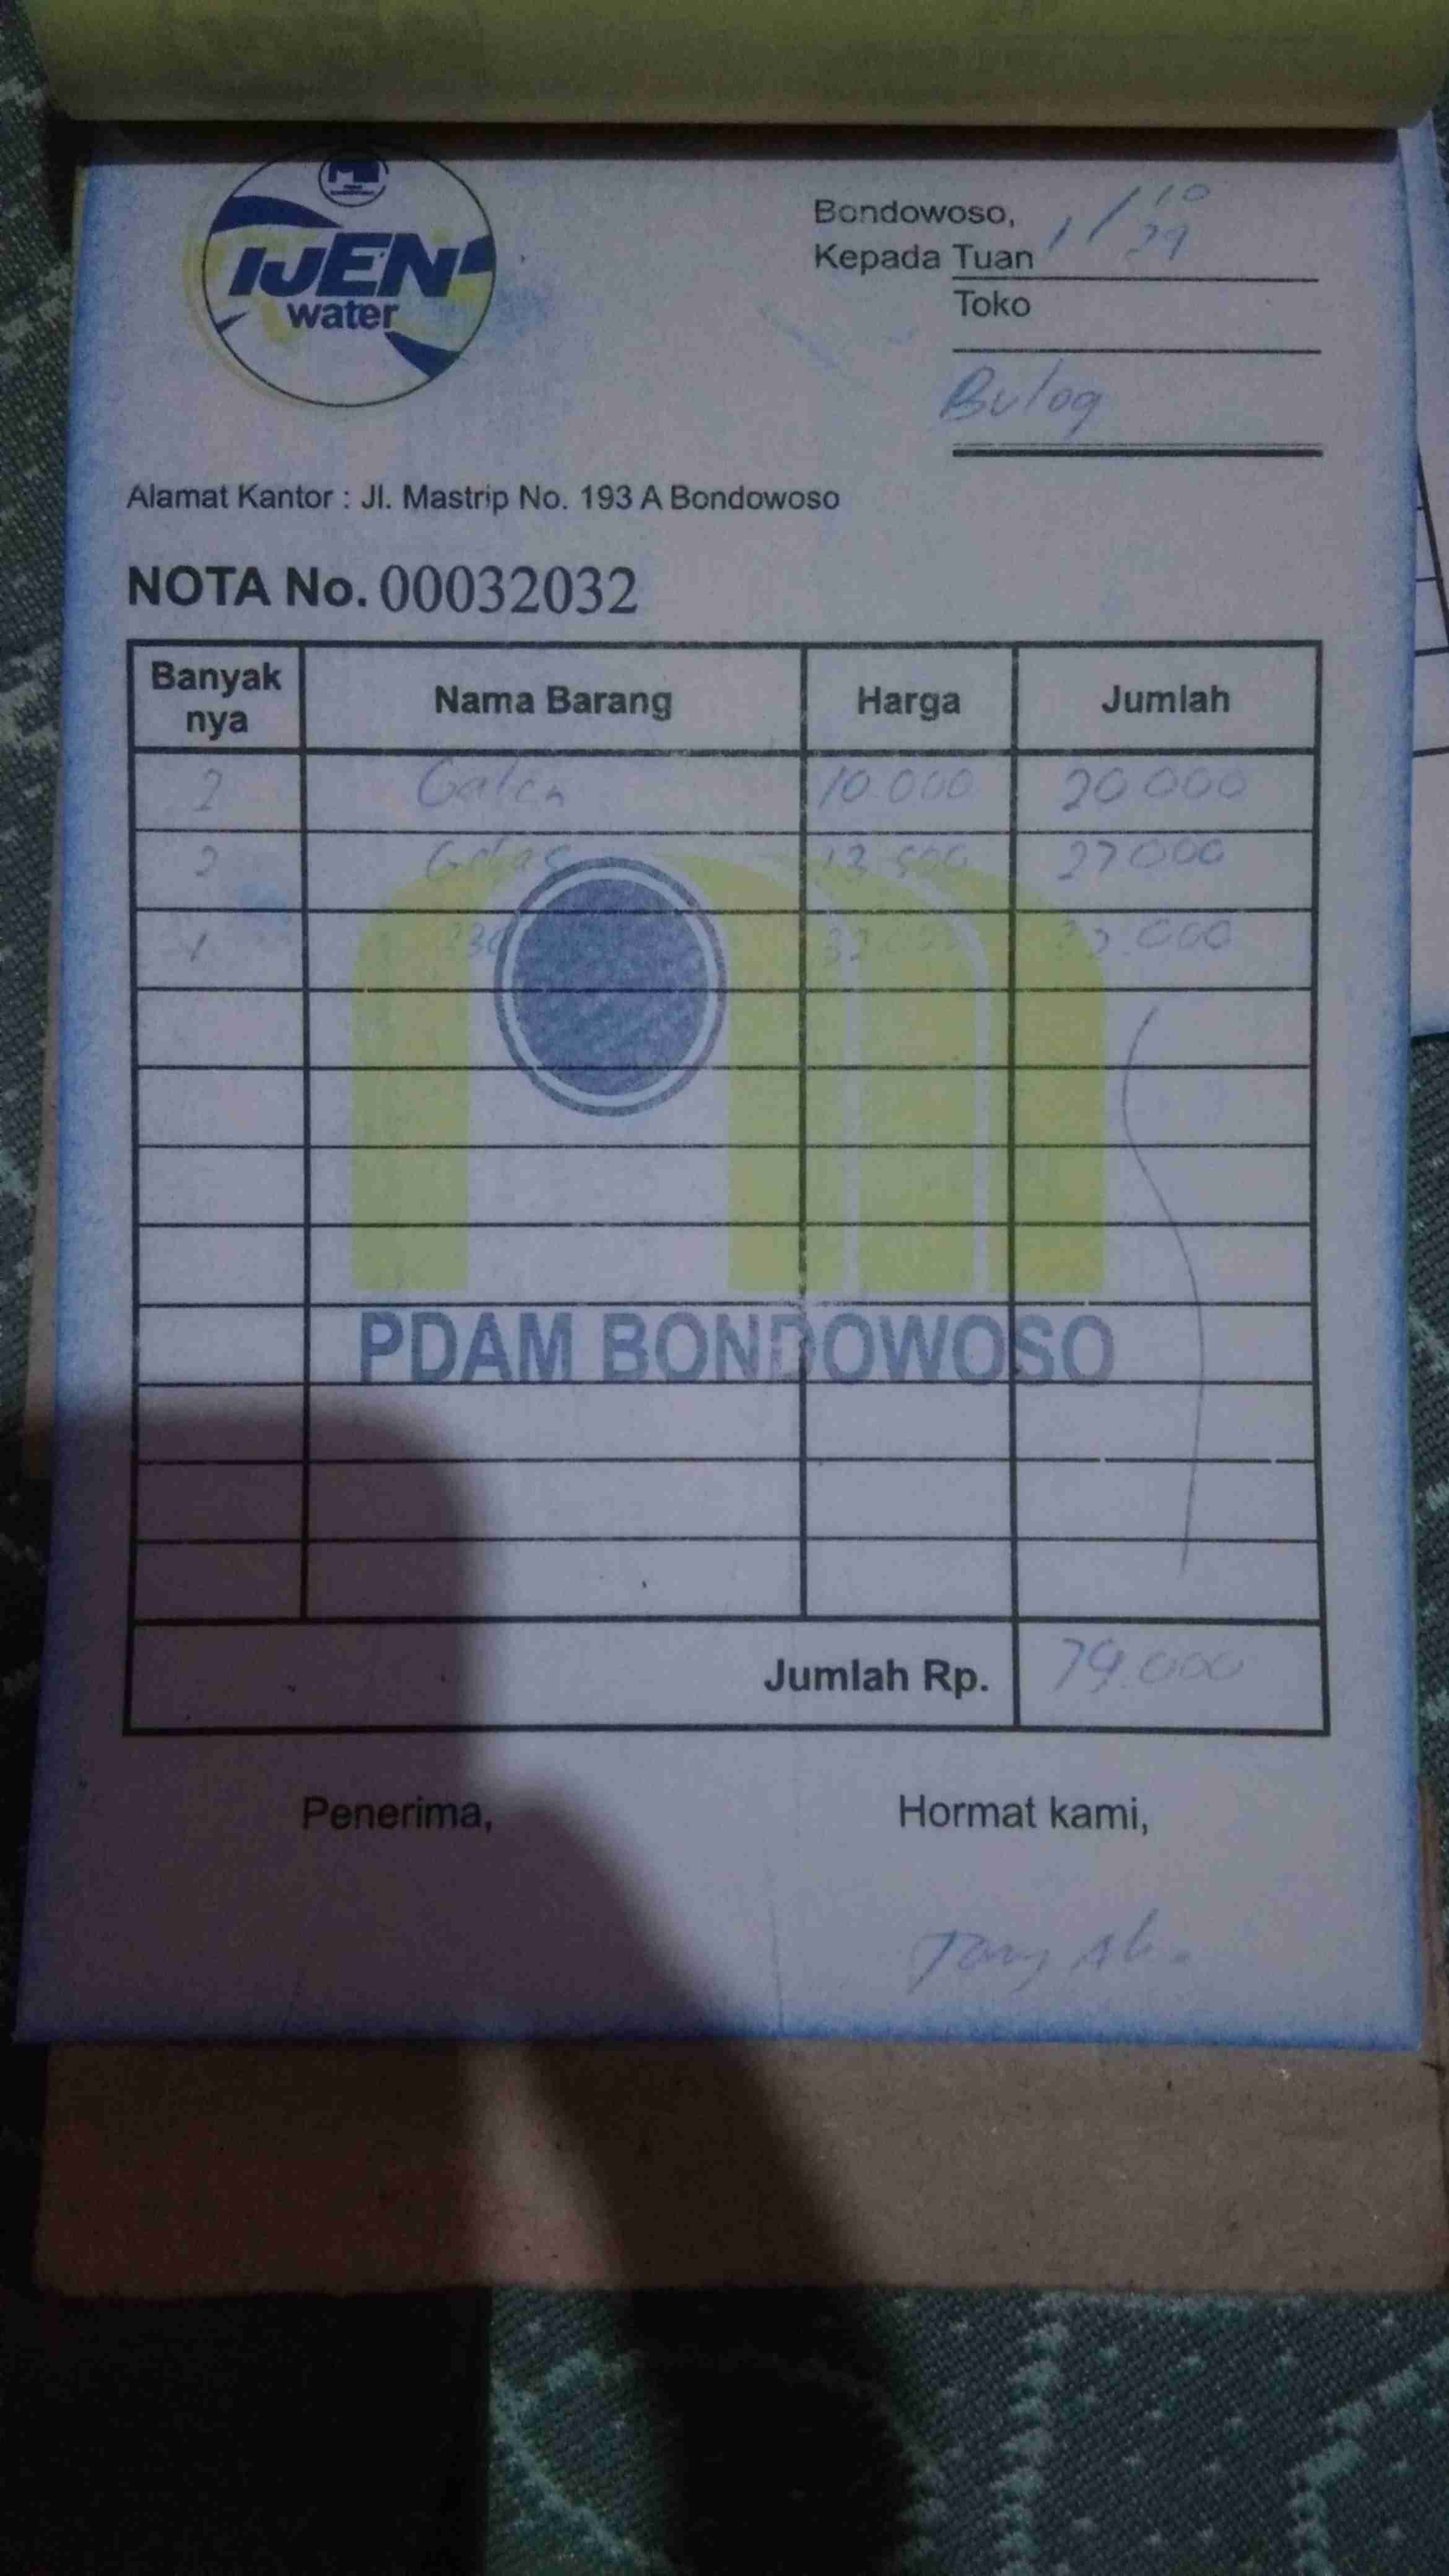 IJEN
water
Bondowoso, 1/10
Kepada Tuan
Toko
Bulog
Alamat Kantor : Jl. Mastrip No. 193 A Bondowoso
NOTA No. 00032032
Banyak nya Nama Barang Harga Jumlah
2 Galon 10.000 20 000
2 Gelas 13.500 27 000
1 32.000
PDAM BONDOWOSO
Jumlah Rp. 79.000
Penerima, Hormat kami,